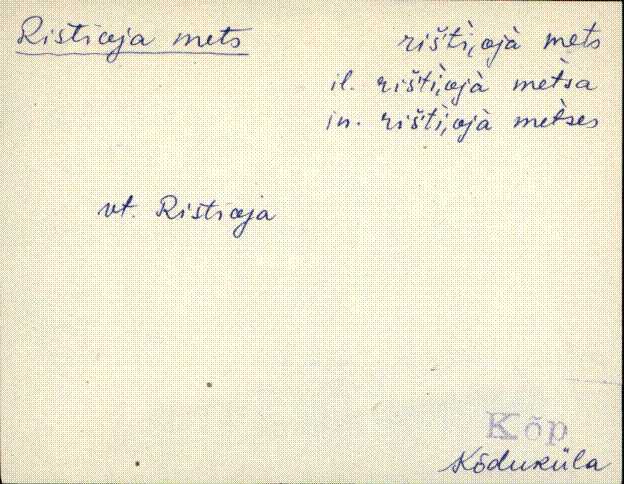 Ristioja mets rišti̮,ojà mets
il. rišti̮,ojà mètsa
in. rišti̮,ojà mètses
vt. Ristioja
Kõp
Kõduküla